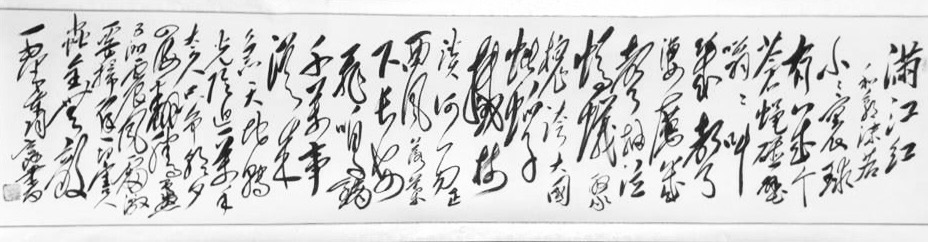 满江红
和郭沫若
小小寰球
有几个
苍蝇碰壁
嗡嗡叫
几声
凄厉几
声抽泣
蚂蚁缘
槐夸大国
蚍蜉
撼树
谈何易正
西风落叶
下长安
飞鸣镝
事
从来
急天地转
光阴迫一万年
太久只争朝夕
四海翻腾云水
怒五洲震荡风雷激
要扫除一切害人
虫全无敌
书